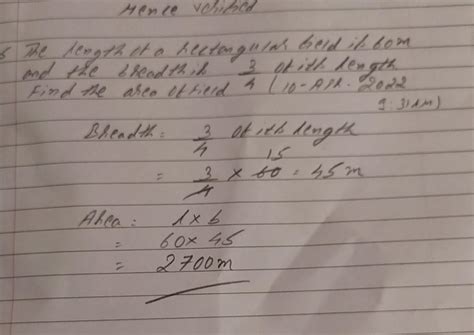 Hence verified
The length of a rectangular field is 60m
and the breadth is 3/4 of its length
Find the area of field (10-APR-2022
9:31AM)
Breadth = 3/4 of its length
15
= 3/4 × 60 = 45 m
Area = l × b
= 60 × 45
= 2700m